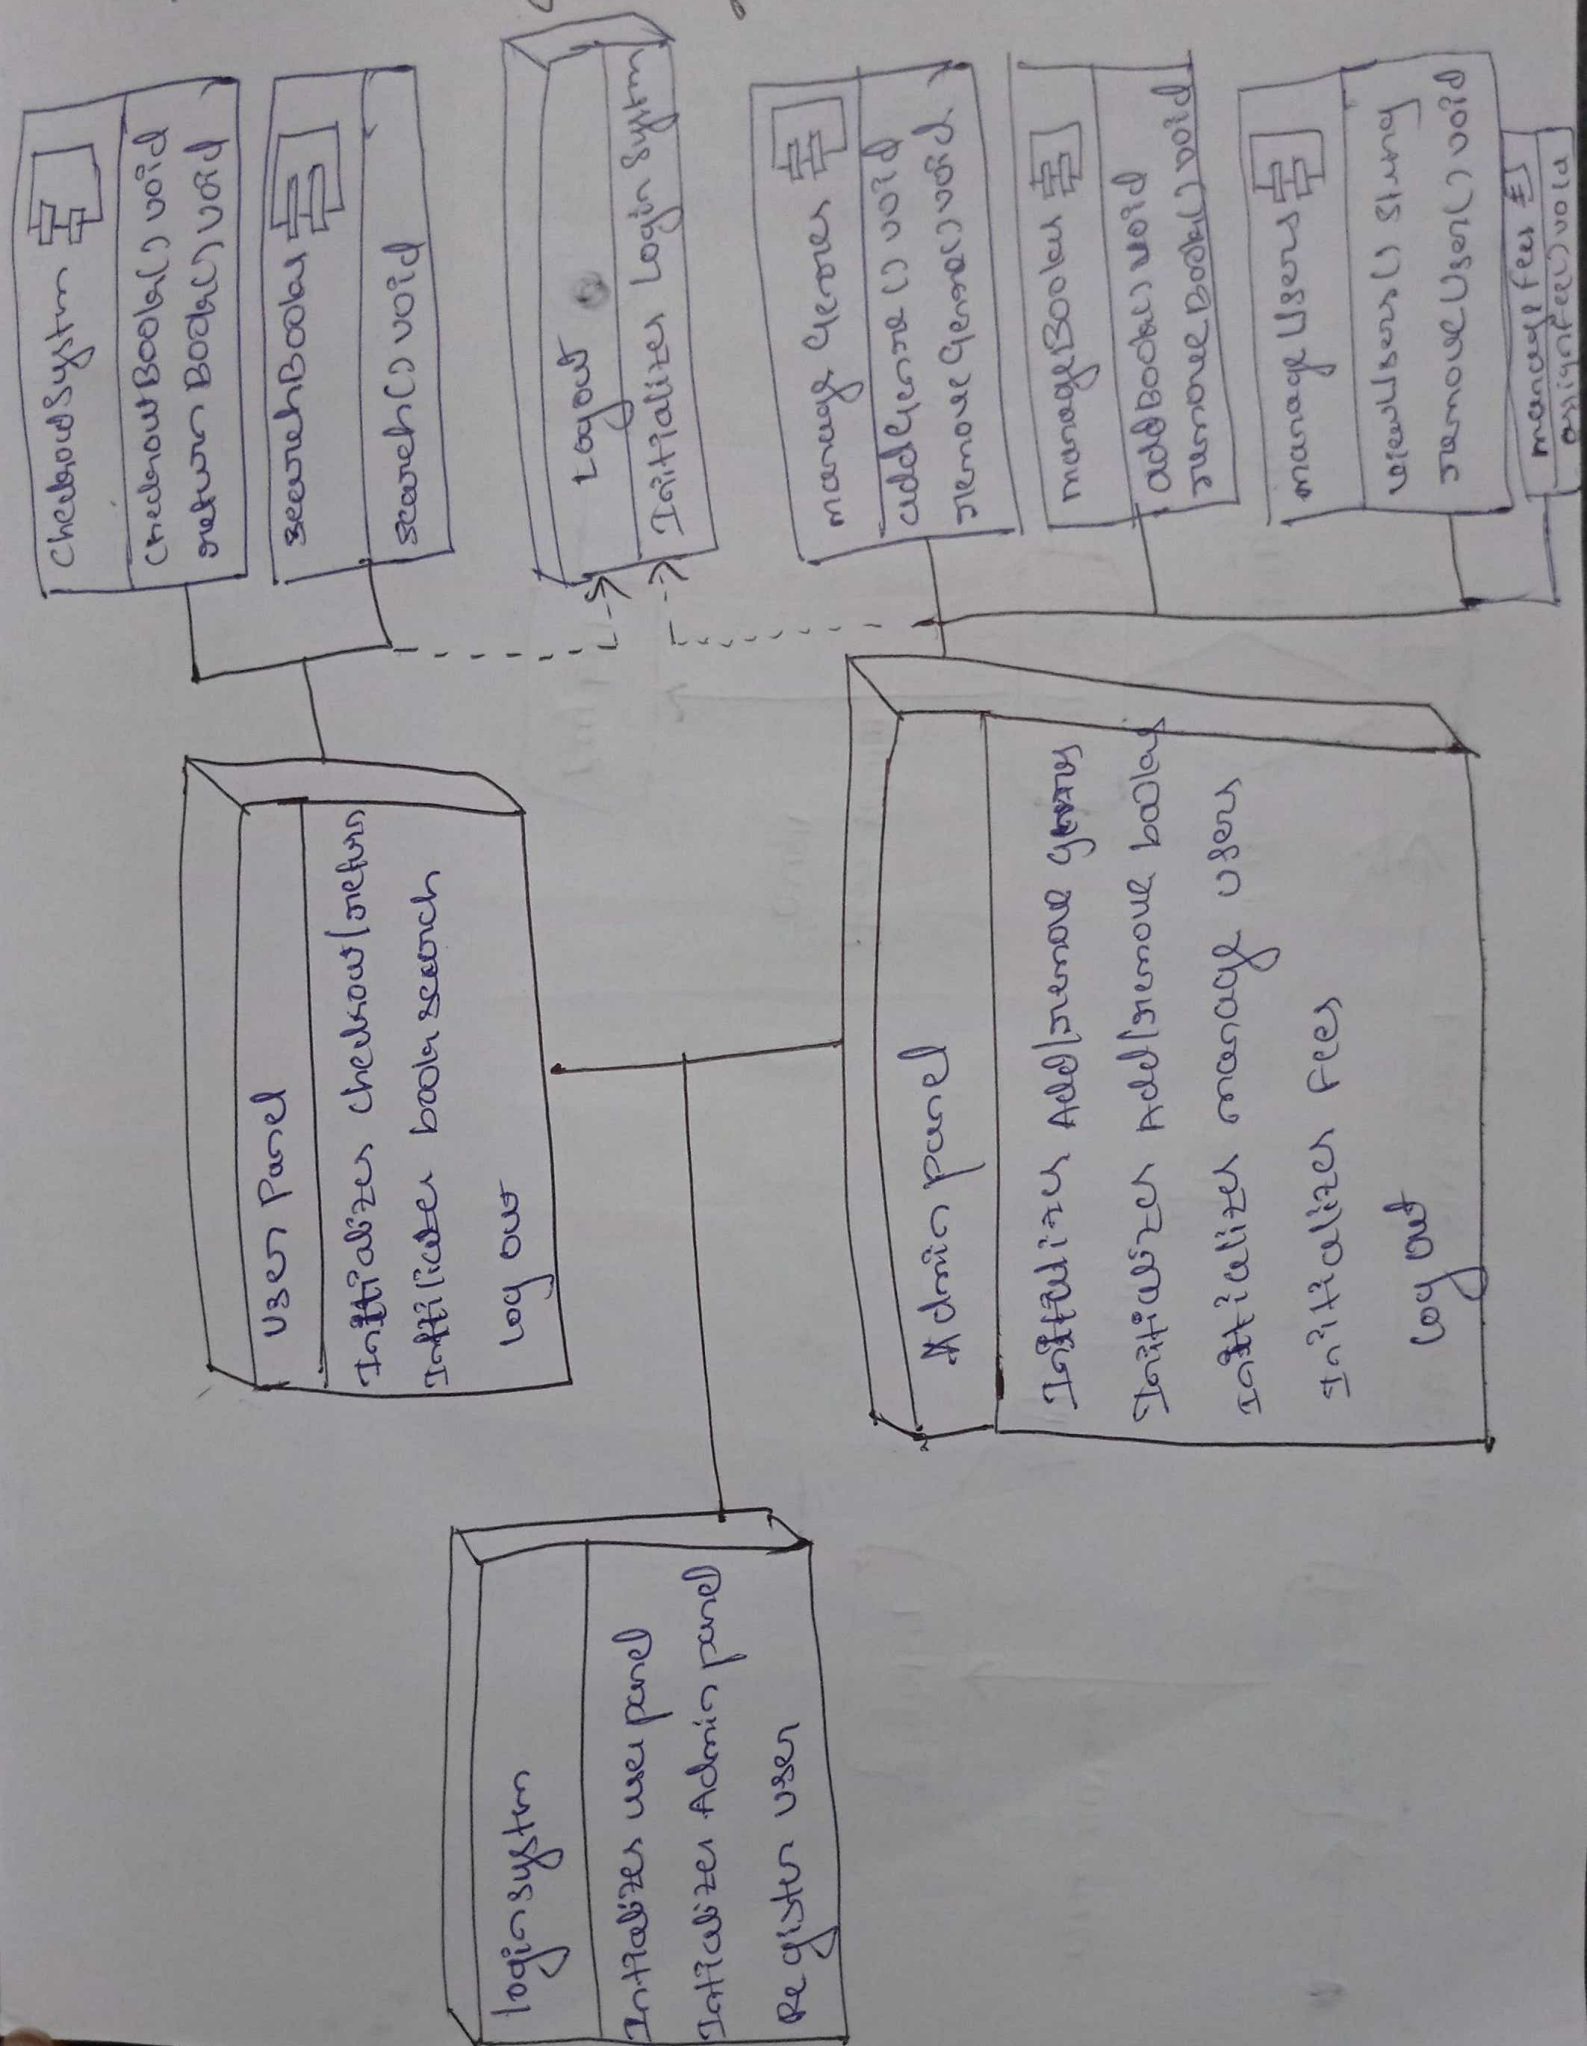 login system
Intializes user panel
Intializes Admin panel
Register user
User Panel
Initializes checkout/return
Initilizes book search
log out
Admin panel
Initilizes Add/remove genres
Initializes Add/remove books
Initializes manage users
Initializes Fees
log out
CheckoutSystem
checkoutBook() void
return Book() void
searchBooks
search() void
Logout
Initializes Login System
manage Genres
addGenre() void
removeGenre() void
manageBooks
addBook() void
removeBook() void
manage Users
viewUsers() String
removeUser() void
manage fees
assignfee() void